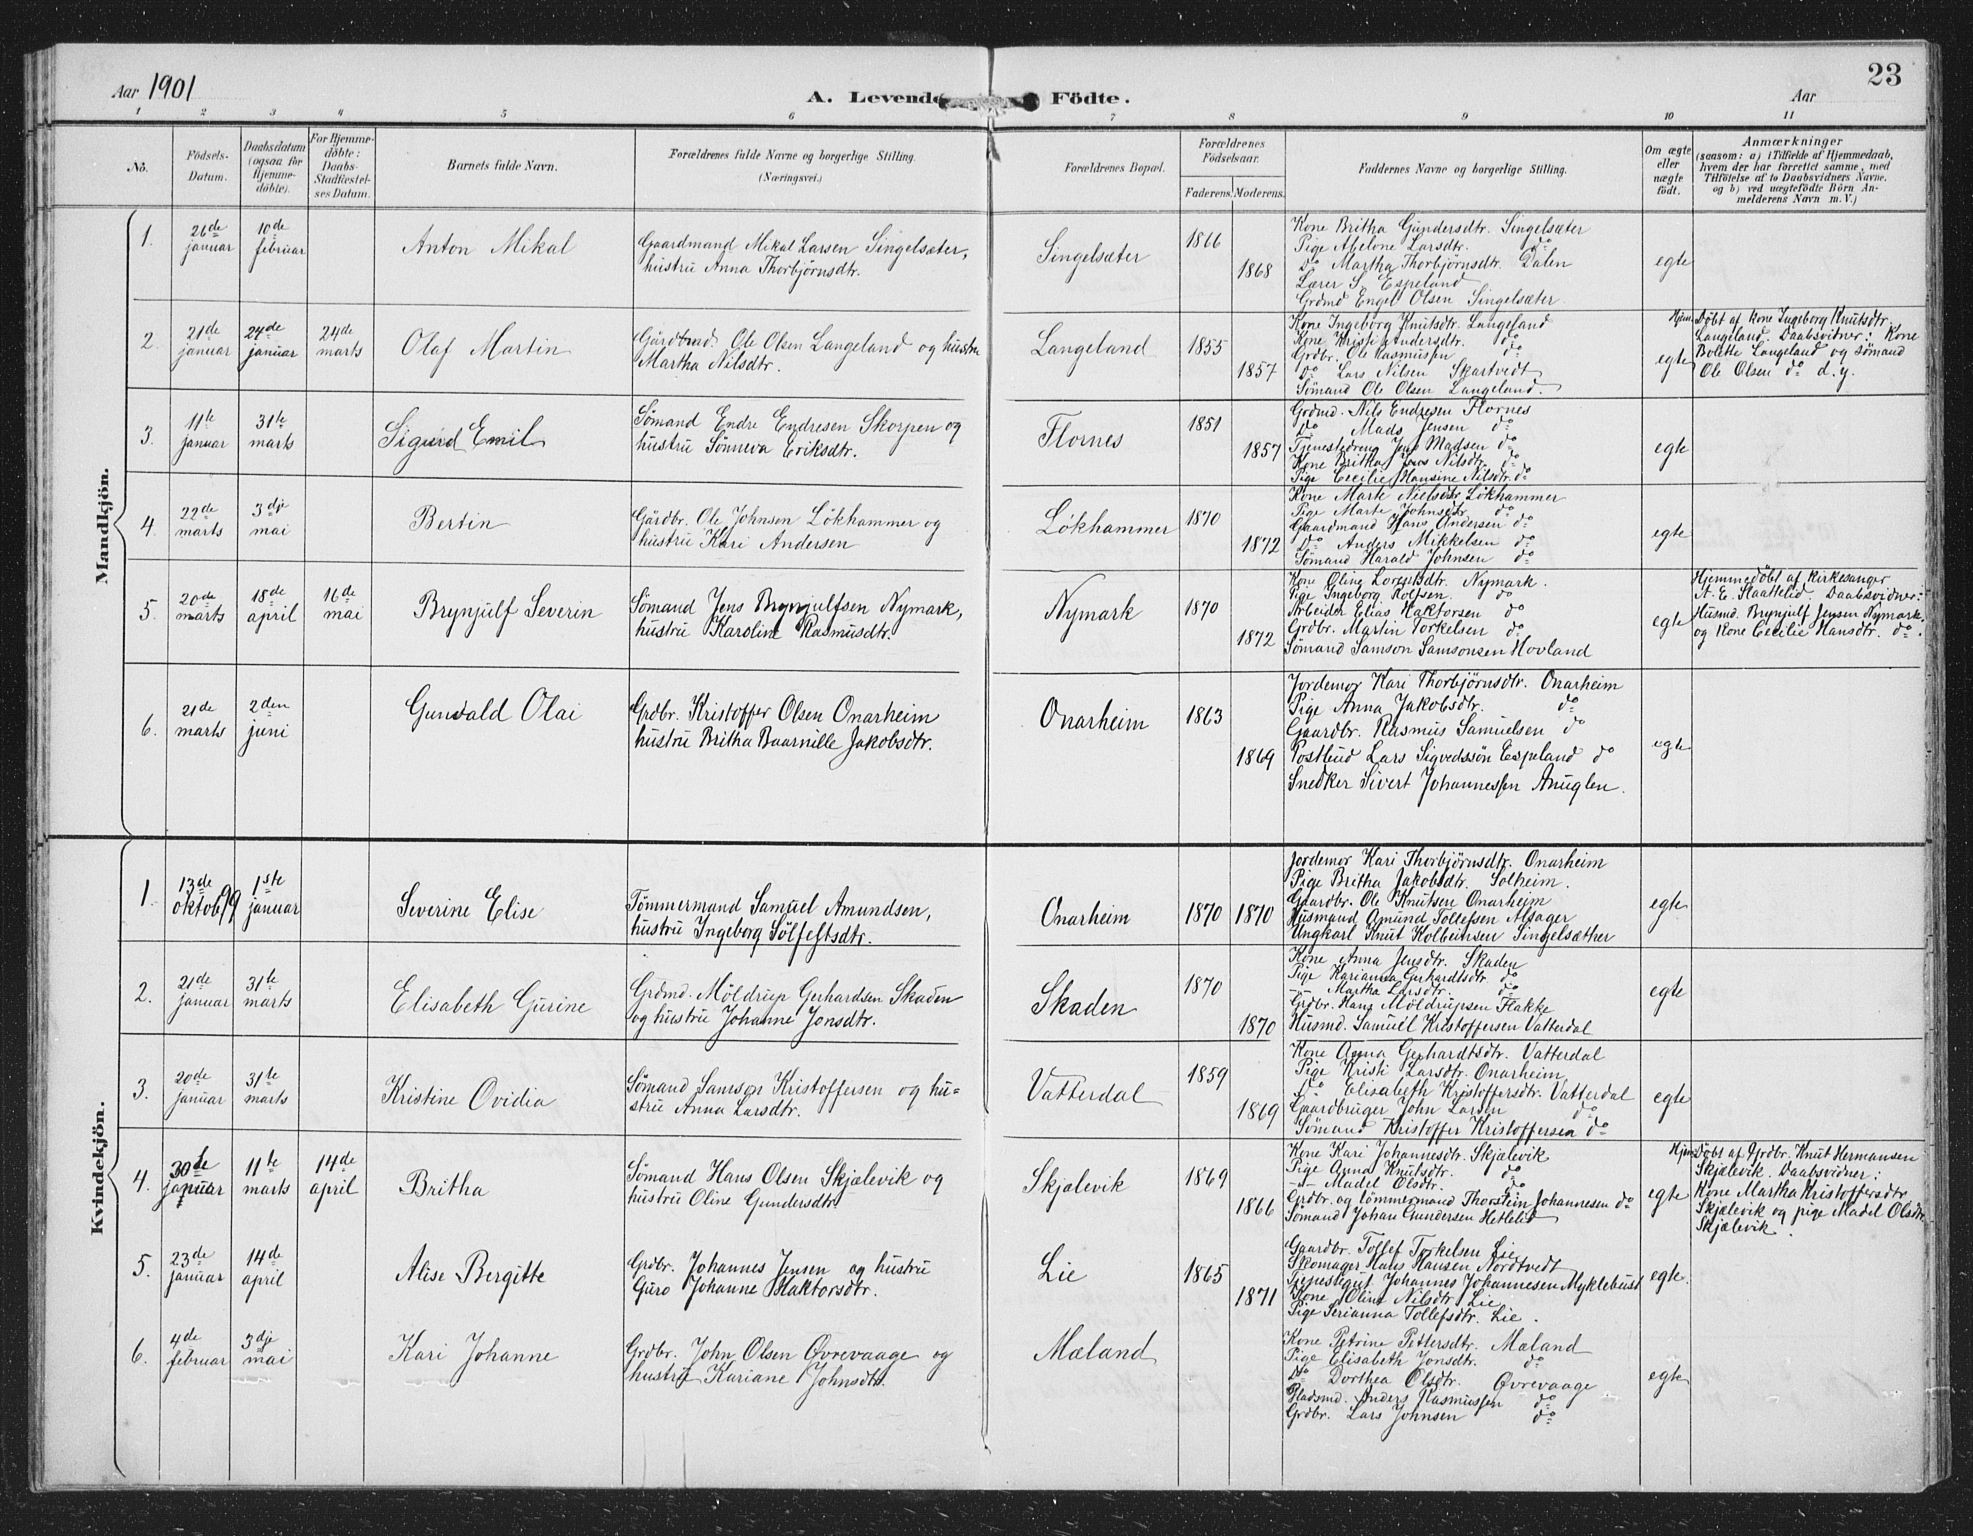 Aar 1901
A. Levende Födte.
Aar
23
1 2 3 4 5 6 7 8 9 10 11
No.
Födsels-
Datum.
Daabsdatum
(ogsaa for
Hjemme-
döbte).
For Hjemme-
döbte:
Daabs-
Stadfæstel-
ses Datum.
Barnets fulde Navn.
Forældrenes fulde Navne og borgerlige Stilling.
(Næringsvei.)
Forældrenes Bopæl.
Forældrenes
Födselsaar.
Faderens. Moderens.
Faddernes Navne og borgerlige Stilling.
Om ægte
eller
uægte
födt.
Anmærkninger
(saasom: a) i Tilfælde af Hjemmedaab,
hvem der har forrettet samme, med
Tilföielse af to Daabsvidners Navne,
og b) ved uægtefödte Börn An-
melderens Navn m. V.)
Mandkjön.
1.
26de
januar
10de
februar
Anton Mikal
Gaardmand Mikal Larsen Singelsæter,
hustru Anna Thorbjörnsdtr.
Singelsæter
1866
1868
Kone Britha Gundersdtr. Singelsæter
Pige Abelone Larsdtr. do
do Martha Thorbjörnsdtr. Dalen
Lærer S. Espeland
Grdmd Engel Olsen Singelsæter.
egte
2.
21de
januar
24de
januar
24de
marts
Olaf Martin
Gårdbrud Ole Olsen Langeland og hustru
Martha Nilsdtr.
Langeland
1855
1857
Kone Ingeborg Knutsdtr. Langeland
Kone Kristi Andersdtr. do
Grdbr. Ole Rasmussen do
do Lars Nilsen Skartvedt
Sömand Ole Olsen Langeland.
egte
Hjem. Döbt af kone Ingeborg Knutsdtr.
Langeland. Daabsvidner: Kone
Bolette Langeland og sömand
Ole Olsen do d.y.
3.
11te
januar
31te
marts
Sigurd Emil
Sömand Endre Endresen Skorpen og
hustru Sönneva Eriksdtr.
Flornes
1851
1857
Grdmd. Nils Endresen Flornes
do Mads Jensen do
Tjenestedreng Jens Madsen do
Kone Britha Nilsdtr. do
Pige Cecilie Hansine Nilsdtr. do
egte
4.
22de
marts
3die
mai
Bertin
Gårdbr. Ole Johnsen Lökhammer og
hustru Kari Andersen
Lökhammer
1870
1872
Kone Marte Nielsdtr. Lökhammer
Pige Marte Johnsdtr. do
Gaardmand Hans Andersen do
do Anders Mikkelsen do
Sömand Harald Johnsen do
egte
5.
20de
marts
18de
april
16de
mai
Brynjulf Severin
Sömand Jens Brynjulfsen Nymark,
hustru Karoline Rasmusdtr.
Nymark
1870
1872
Kone Oline Lorentsdtr. Nymark.
Pige Ingeborg Rolfsen. do
Arbeider Elias Haktorsen do
Grdbr. Martin Torkelsen do
Sömand Samson Samsonsen Hovland
egte
Hjemmedöbt af kirkesanger
A. E. Staattelid. Daabsvidner:
Husmd. Brynjulf Jensen Nymark,
og Kone Cecilie Hansdtr. do.
6.
21de
marts
2den
juni
Gunvald Olai
Grdbr. Kristoffer Olsen Onarheim
hustru Britha Baarnille Jakobsdtr.
Onarheim
1863
1869
Jordemor Kari Thorbjörnsdtr. Onarheim
Pige Anna Jakobsdtr. do
Gaardbr. Rasmus Samuelsen do
Postbud Lars Sigvedssön Espeland do
Snedker Sivert Johannessen Anuglen.
egte
Kvindekjön.
1.
13de
oktob 99
1ste
januar
Severine Elise
Tömmermand Samuel Amundsen,
hustru Ingeborg Sölfestsdtr.
Onarheim
1870 1870
Jordemor Kari Thorbjörnsdtr. Onarheim
Pige Britha Jakobsdtr. Solheim.
Gaardbr. Ole Knutsen Onarheim
Husmand Amund Tollefsen Alsager
Ungkarl Knut Kolbeinsen Singelsæther
egte
2.
21de
januar
31te
marts
Elisabeth Gurine
Grdmd. Möldrup Gerhardsen Skaden
og hustru Johanne Jonsdtr.
Skaden
1870
1870
Kone Anna Jensdtr. Skaden
Pige Karianna Gerhardtsdtr. do
-"- Martha Larsdtr. do
Grdbr. Hans Möldrupsen Flakke
Husmd. Samuel Kristoffersen Vatterdal
egte
3.
20de
januar
31te
marts
Kristine Ovidia
Sömand Samson Kristoffersen og hu-
stru Anna Larsdtr.
Vatterdal
1859
1869
Kone Anna Gerhardtsdtr. Vatterdal
Pige Kristi Larsdtr. Onarheim
do Elisabeth Kristoffersdtr. Vatterdal
Gaardbruger John Larsen do
Sömand Kristoffer Kristoffersen do
egte
4.
30te
januar
11te
marts
14de
april
Britha
Sömand Hans Olsen Skjælevik og
hustru Oline Gundersdtr.
Skjælevik
1869
1866
Kone Kari Johannesdtr. Skjælevik
Pige Anna Knutsdtr. do
-"- Madel Olsdtr. do
Grdbr. og tömmermand Thorstein Johannesen do
Sömand Johan Gundersen Hetlelid
egte
Hjem. Döbt af Grdbr. Knut Hermansen
Skjælevik. Daabsvidner:
Kone Martha Kristoffersdtr
Skjælevik og pige Madel Olsdtr
Skjælevik.
5.
23de
januar
14de
april
Alise Bergitte
Grdbr. Johannes Jensen og hustru
Guro Johanne Haktorsdtr.
Lie
1865
1871
Gaardbr. Tollef Torkelsen Lie
Skomager Hans Hansen Nordtvedt
Tjenestegut Johannes Johannesen Myklebust
Kone Oline Nilsdtr. Lie
Pige Serianna Tollefsdtr. Lie.
egte.
6.
4de
februar
3die
mai
Kari Johanne
Grdbr. John Olsen Øvrevaage og
hustru Kariane Johnsdtr.
Mæland
Kone Petrine Pettersdtr. Mæland
Pige Elisabeth Jonsdtr. do
do Dorthea Olsdtr. Øvrevaage
Pladsmd. Anders Rasmussen do
Grdbr. Lars Johnsen do
egte